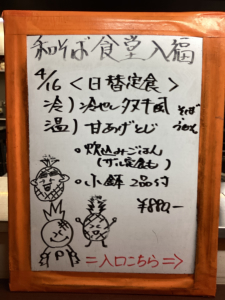 和そば食堂入福
4/16 <日替定食>
冷) 冷やしタヌキ風 そば
温) 甘あげとじ うどん
。炊込みごはん
。小鉢 2品付
¥890.-
P
=入口こちら=>